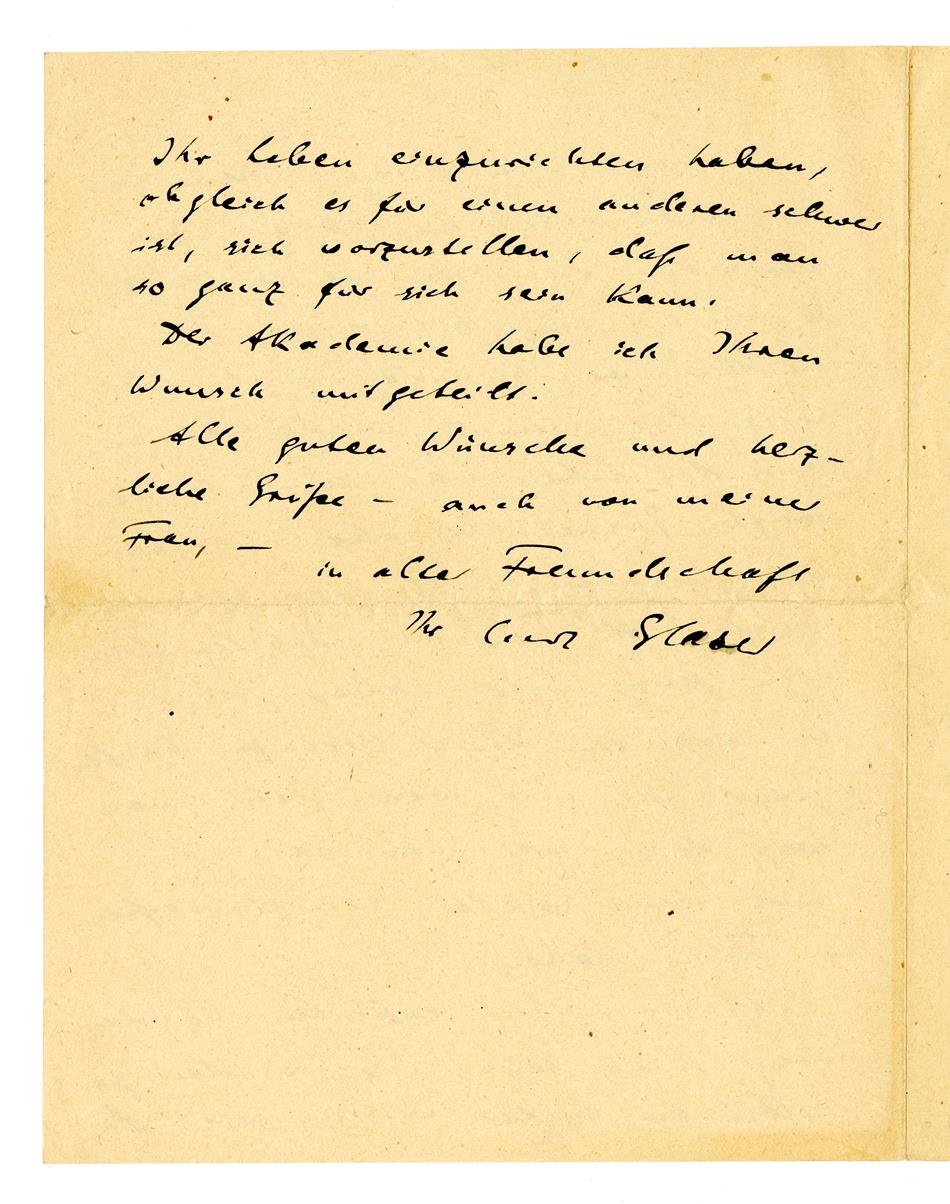 Ihr Leben einzurichten haben,
obgleich es für einen anderen schwer
ist, sich vorzustellen, daß man
so ganz für sich sein kann.
Der Akademie habe ich Ihren
Wunsch mitgeteilt.
Alle guten Wünsche und herz-
liche Grüße – auch von meiner
Frau, –
in alter Freundschaft
Ihr Curt Glaser